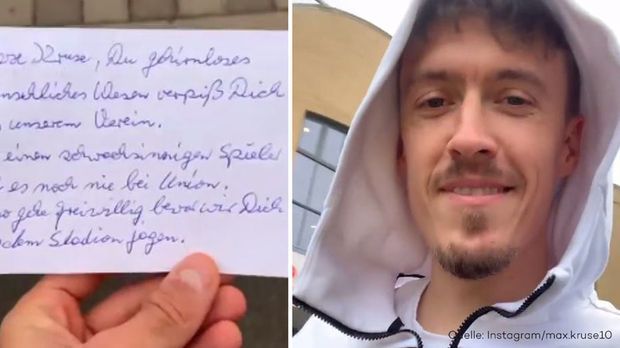 Kruse, Du gehirnloses
nschliches Wesen verpiß Dich
s unserem Verein.
einen schwachsinnigen Spieler
es noch nie bei Union.
o gehe freiwillig bevor wir Dich
dem Stadion jagen.
Quelle: Instagram/max.kruse10